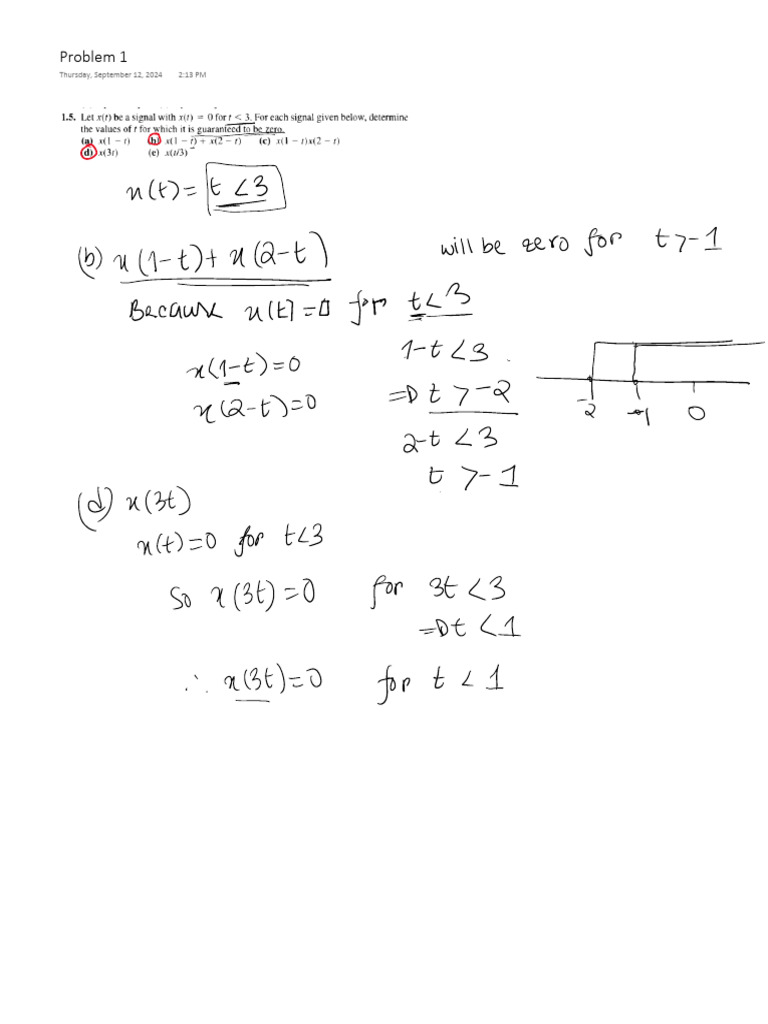 Problem 1
Thursday, September 12, 2024 2:13 PM
1.5. Let x(t) be a signal with x(t) = 0 for t < 3. For each signal given below, determine
the values of t for which it is guaranteed to be zero.
(a) x(1 − t) (b) x(1 − t) + x(2 − t) (c) x(1 − t)x(2 − t)
(d) x(3t) (e) x(t/3)
x(t) = t < 3
(b) x(1-t) + x(2-t)
will be zero for t > -1
Because x(t) = 0 for t < 3
x(1-t) = 0
1-t < 3
x(2-t) = 0
=> t > -2
2-t < 3
t > -1
-2 -1 0
(d) x(3t)
x(t) = 0 for t < 3
So x(3t) = 0 for 3t < 3
=> t < 1
∴ x(3t) = 0 for t < 1